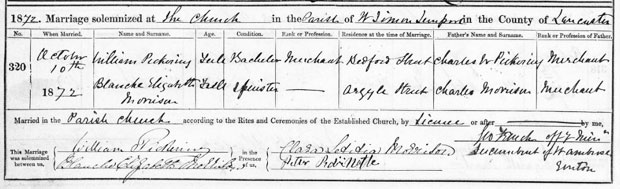 1872. Marriage solemnized at The Church in the Parish of St Simon Liverpool in the County of Lancaster
No. When Married. Name and Surname. Age. Condition. Rank or Profession. Residence at the time of Marriage. Father's Name and Surname. Rank or Profession of Father.
320 October 10th 1872 William Pickering Full Bachelor Merchant Bedford Street Charles W Pickering Merchant
Blanche Elizabeth Morrison Full Spinster Argyle Street Charles Morrison Merchant
Married in the Parish Church according to the Rites and Ceremonies of the Established Church, by Licence or after by me,
This Marriage was solemnized between us, William Pickering in the Presence of us, Clara Lydia Morrison
Blanche Elizabeth Morrison Peter
Incumbent of St Ambrose
Everton